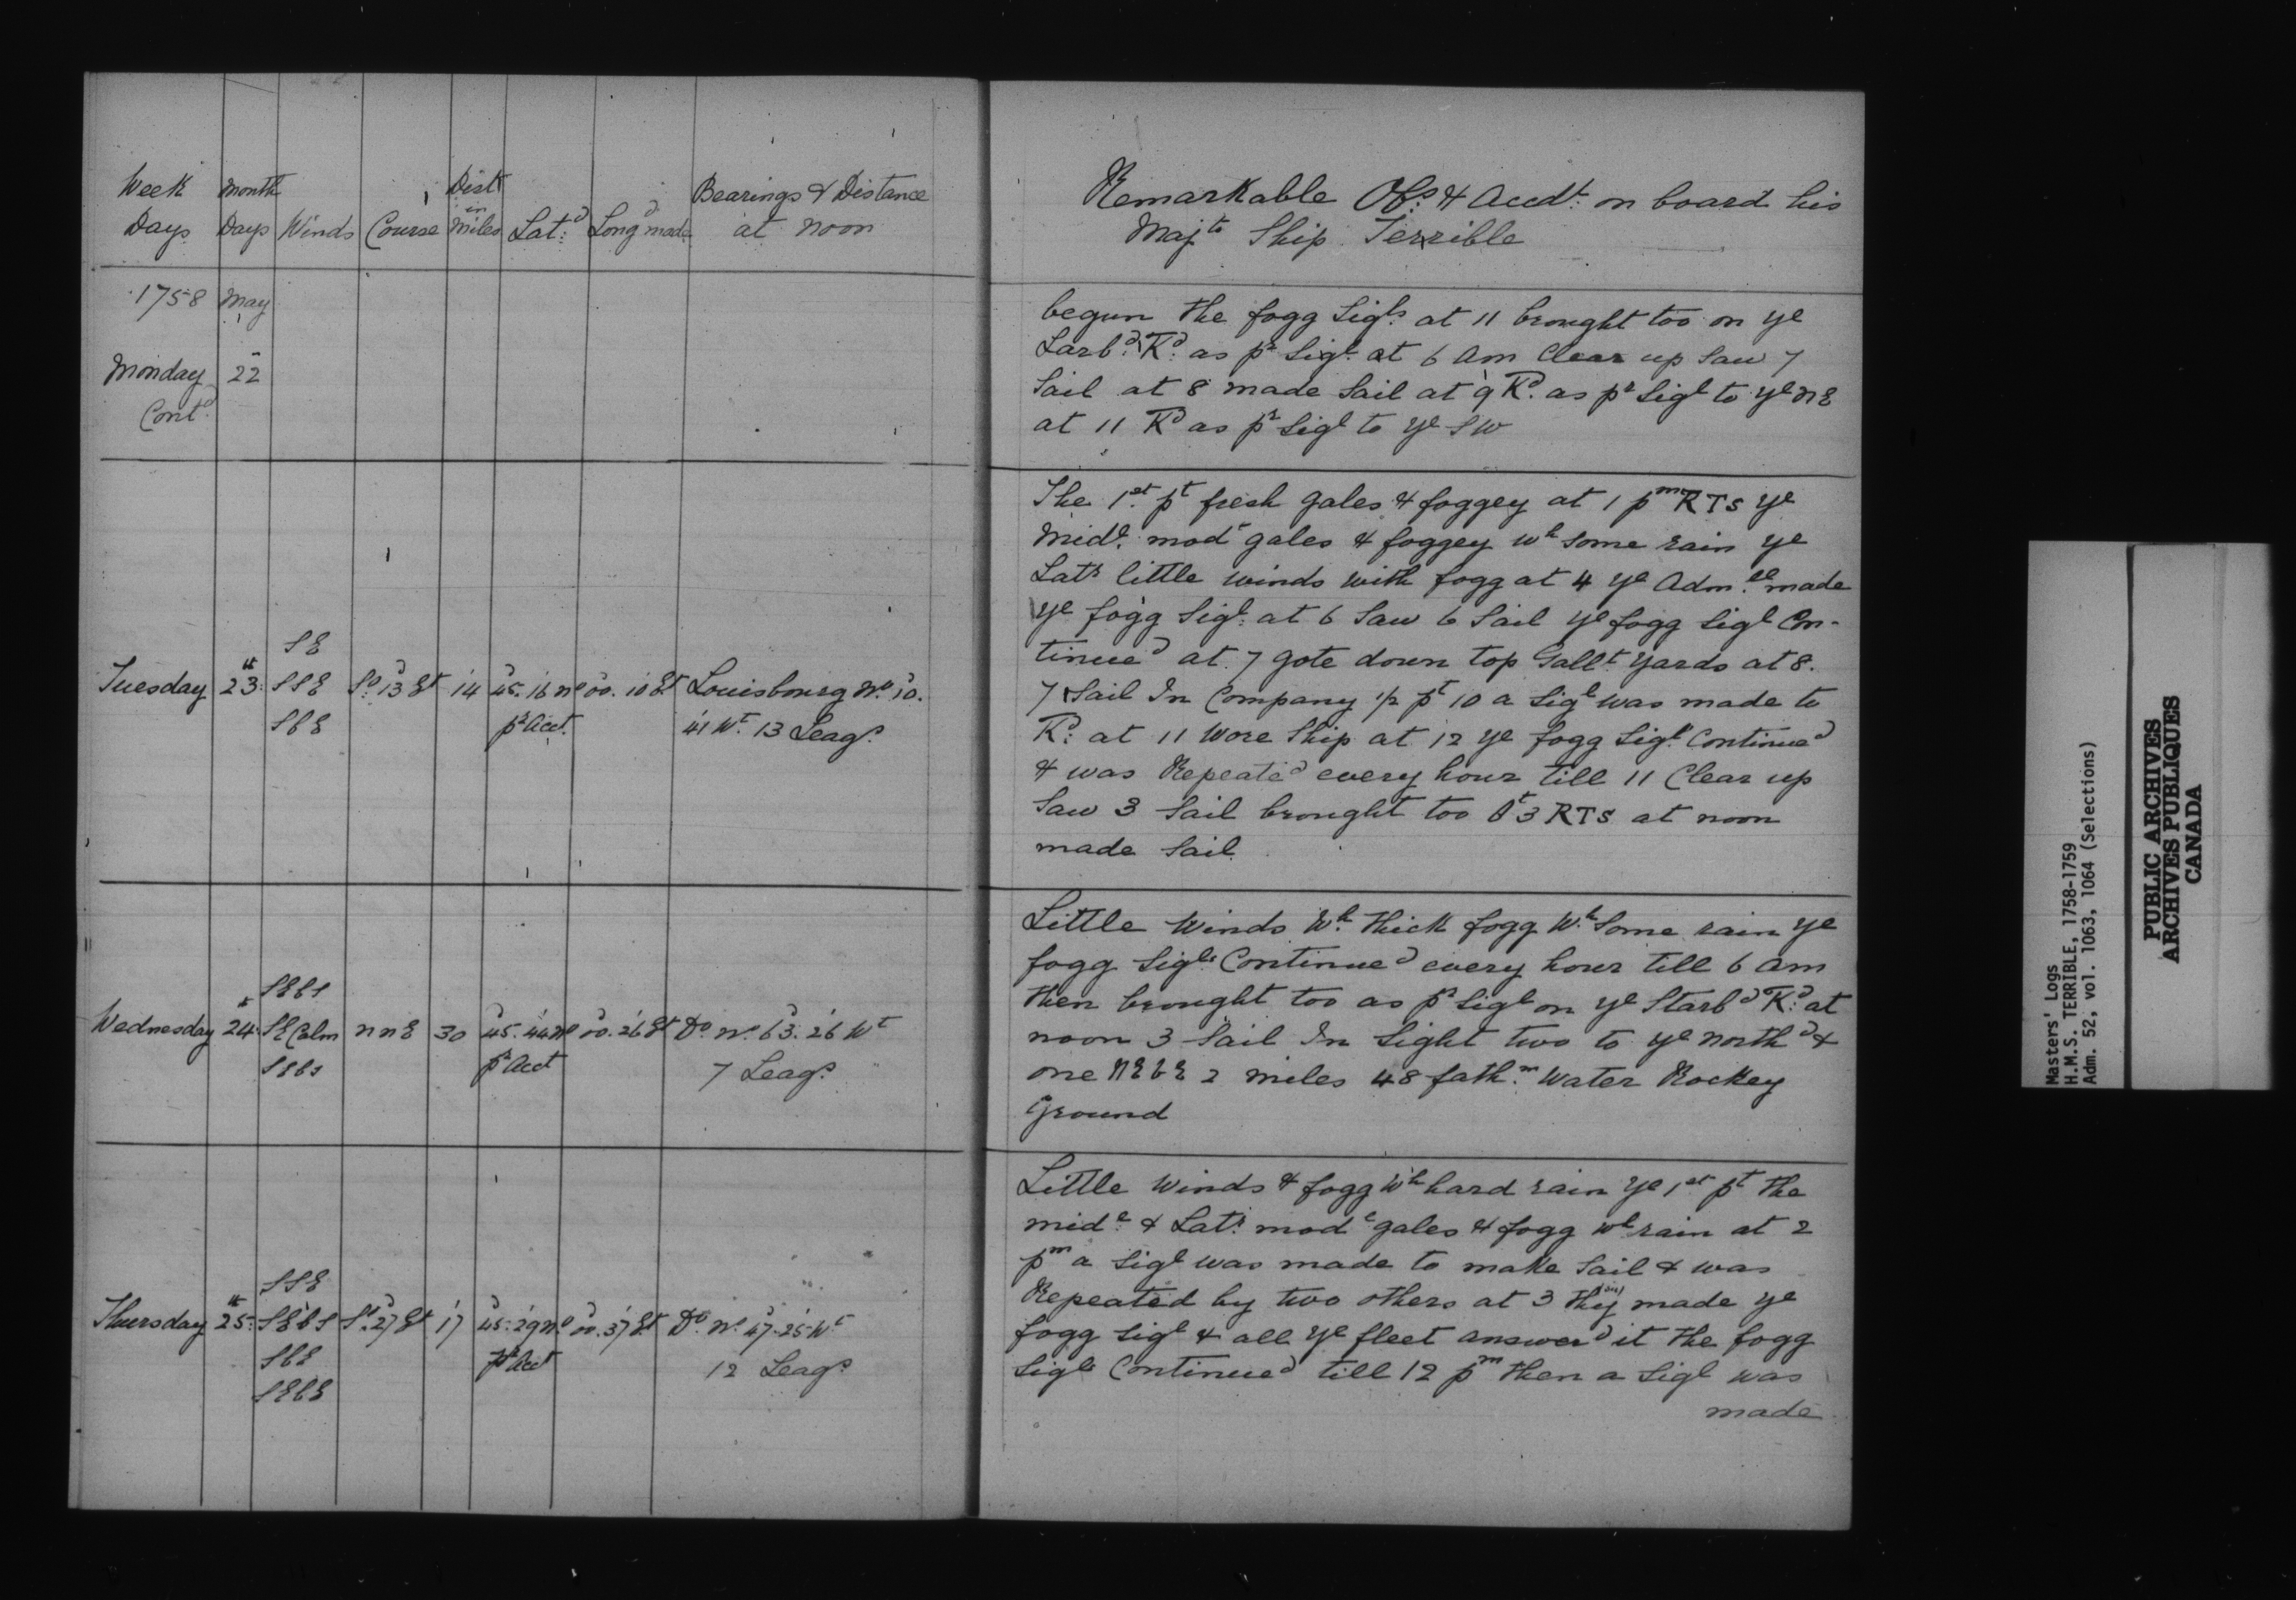 Week Days
Month Days
Winds
Course
Dist in Miles
Latd:
Longd made
Bearings & Distance at Noon
1758 May
Monday 22 Contd:
Tuesday 23th:
SE
SSE
SbE
So 13 Et
14
45.16 No
pr Acct.
00.10 Et
Louisbourg No. 10.
41 Wt. 13 Leags.
Wednesday 24th:
SEbS
SE Calm
SEbS
NNE
30
45.44 No
pr Acct
00.26 Et
Do No 63.26 Wt
7 Leags.
Thursday 25th:
SSE
SEbS
SbE
SEbE
So. 27 Et
17
45.29 No
pr Acct
00.37 Et
Do. No. 47.25 Wt
12 Leags.
Remarkable Obs: & Accdt: on board his
Majts Ship Terrible
begun the fogg Sigls. at 11 brought too on ye
Larbd: Kd: as pr Sigl. at 6 Am Clear up Saw 7
Sail at 8 made Sail at 9 Kd. as pr Sigl to ye NE
at 11 Kd as pr Sigl to ye SW
The 1st. pt fresh gales & foggey at 1 pm RTS ye
Midl. modt gales & foggey wh some rain ye
Latr little winds with fogg at 4 ye Adm.ll made
ye fogg Sigl: at 6 Saw 6 Sail ye fogg Sigl Con-
tinued at 7 gote down top Gallt Yards at 8.
7 Sail In Company 1/2 pt 10 a Sigl was made to
Kd: at 11 Wore Ship at 12 ye fogg Sigl. Continued
& was Repeated every hour till 11 Clear up
Saw 3 Sail brought too 3 RTS at noon
made Sail
Little Winds Wh. thick fogg Wh. Some rain ye
fogg Sigls Continued every hour till 6 Am
then brought too as pr Sigl on ye Starbd Kd: at
noon 3 Sail In Sight two to ye Northd &
one NEbE 2 miles 48 fathm. Water Rockey
Ground
Little Winds & fogg Wh hard rain ye 1st pt the
midl. & Latr. modt gales & fogg wh rain at 2
pm a Sigl was made to make Sail & was
Repeated by two others at 3 they made ye
fogg Sigl & all ye fleet answerd it the fogg
Sigls Continued till 12 pm then a Sigl was
made
Masters' Logs
H.M.S. TERRIBLE, 1758-1759
Adm. 52, vol. 1063, 1064 (Selections)
PUBLIC ARCHIVES
ARCHIVES PUBLIQUES
CANADA